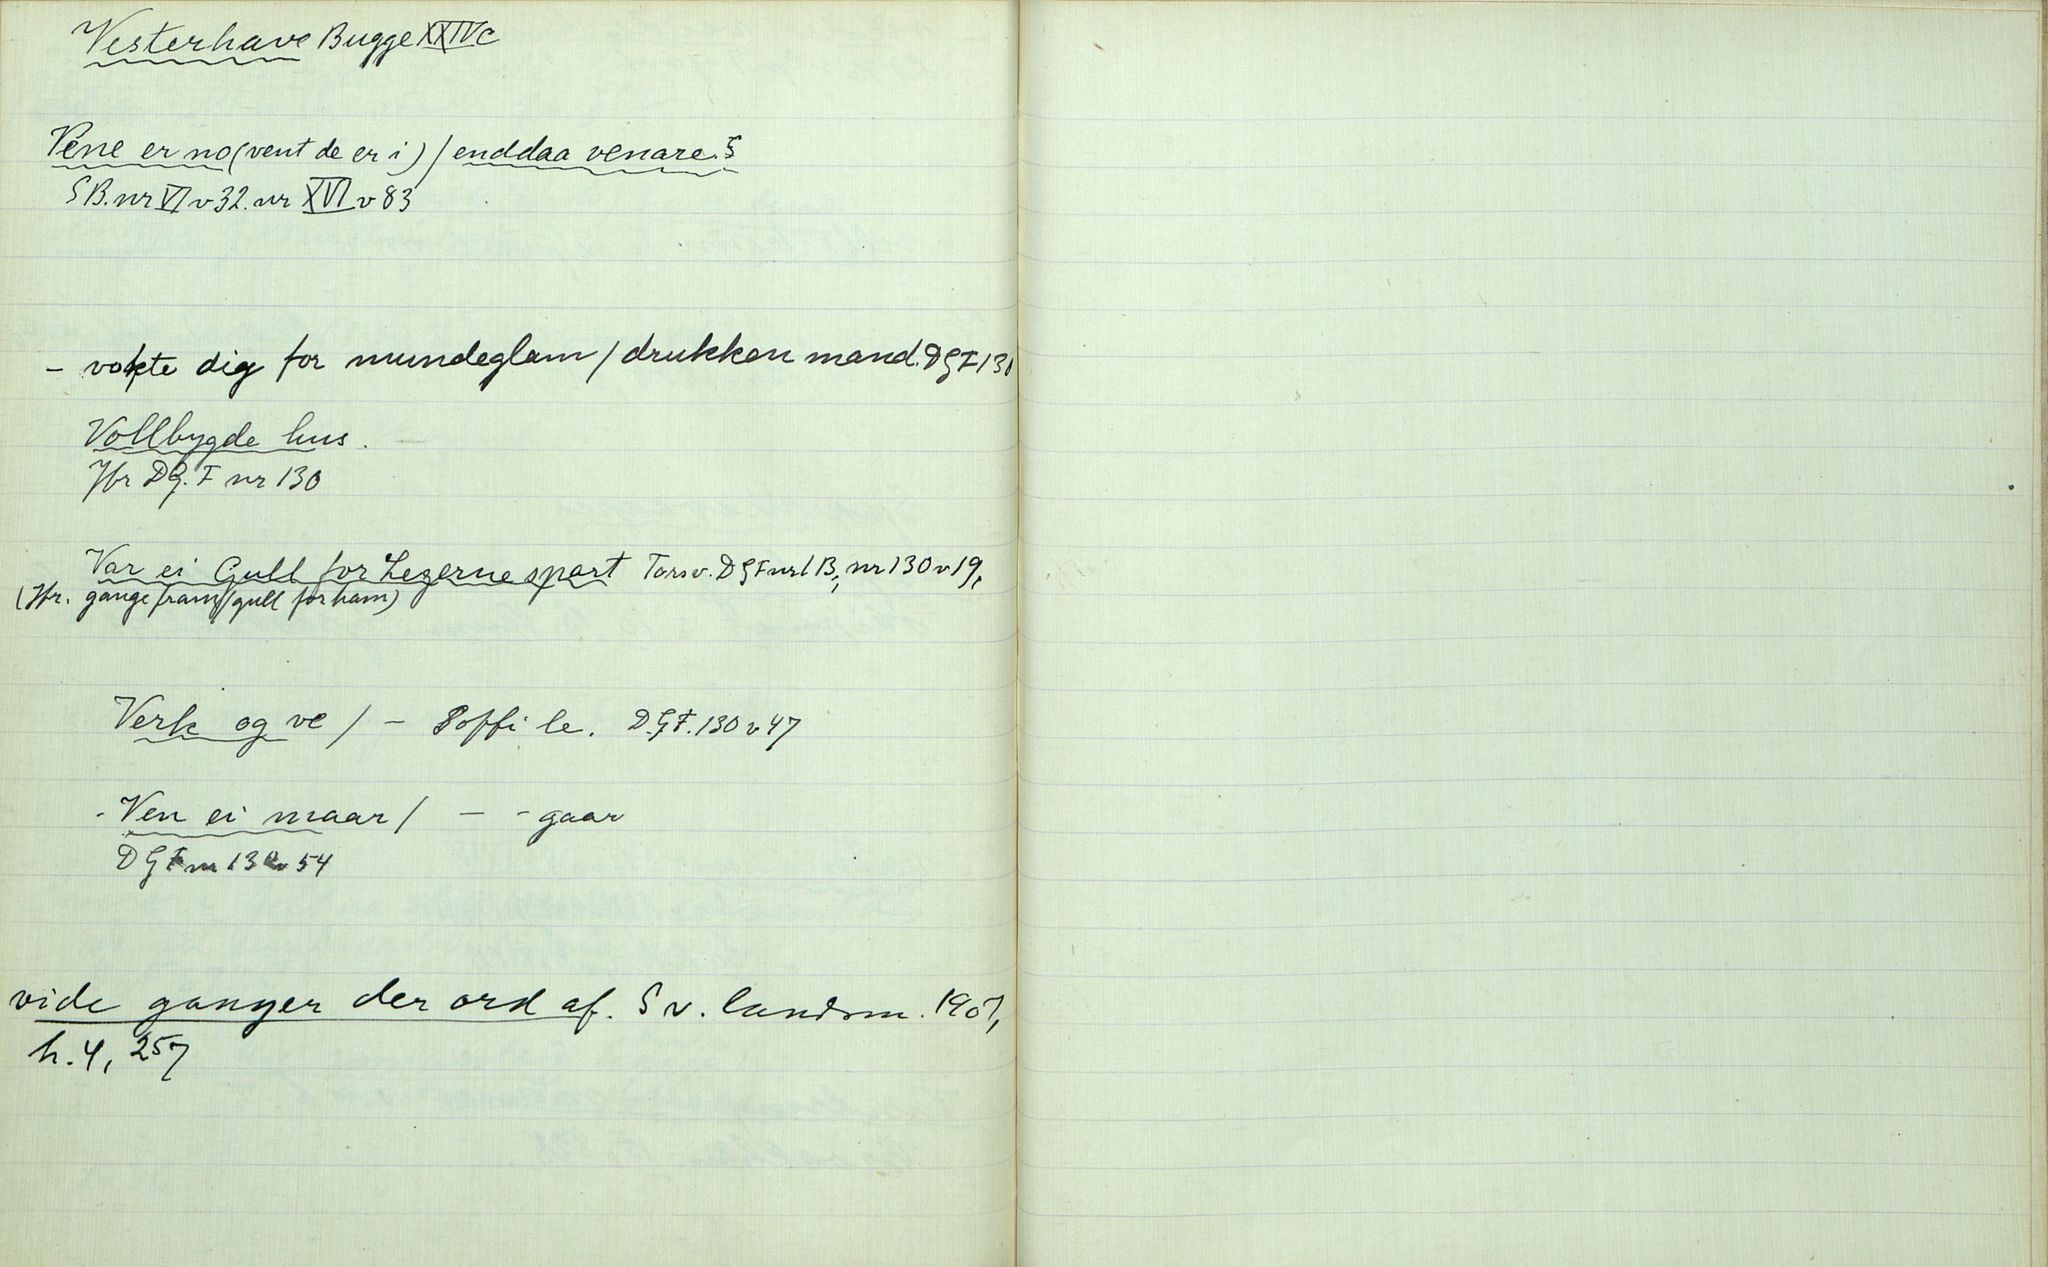 Vesterhave Bugge XXIVc
Vene er no (vent de er i) / enddaa venare. S
SB. nr VI v 32. nr XVI v 83
- vokte dig for mundeglam / drukken mand. DGF 130
Vollbygde hus.
Jfr DG.F nr 130
Var ei Gull for Legerne spart Torsv. DGF nr 1 B, nr 130 v 19,
(Jfr. gange fram / gull for ham)
Verk og ve / - Soffi le. D.G.F. 130 v 47
- Ven ei maar / - - gaar
DGF nr 130 v 54
vide ganger der ord af. Sv. landsm. 1907,
h. 4, 257